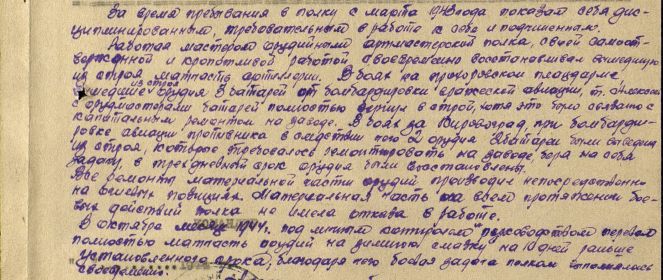 За время пребывания в полку с марта 1943 года показал себя дис-
циплинированным, требовательным в работе к себе и подчиненным.
Работая мастером орудийным артмастерской полка, своей самоот-
верженной и кропотливой работой своевременно восстанавливал вышедшую
из строя матчасть артиллерии. В боях на прохоровском плацдарме,
вышедшие из строя орудия 3 батареи от бомбардировки вражеской авиации, т.
с орудмастерами батарей полностью в строй, хотя это было связано с
капитальным ремонтом на заводе. В боях за Кировоград, при бомбарди-
ровке авиации противника в следствии чего 2 орудия батареи были выведены
из строя, которые требовалось ремонтировать на заводе, беря на себя
задачу, в трехдневный срок орудия были восстановлены.
Все ремонты материальной части орудий производил непосредственно
на огневых позициях. Материальная часть на всем протяжении бое-
вых действий полка не имела отказа в работе.
В октябре месяце 1944 г. под личным контролем и руководством перевел
полностью матчасть орудий на зимнюю смазку на 10 дней раньше
установленного срока, благодаря чего боевая задача полком выполнялась
своевременно.